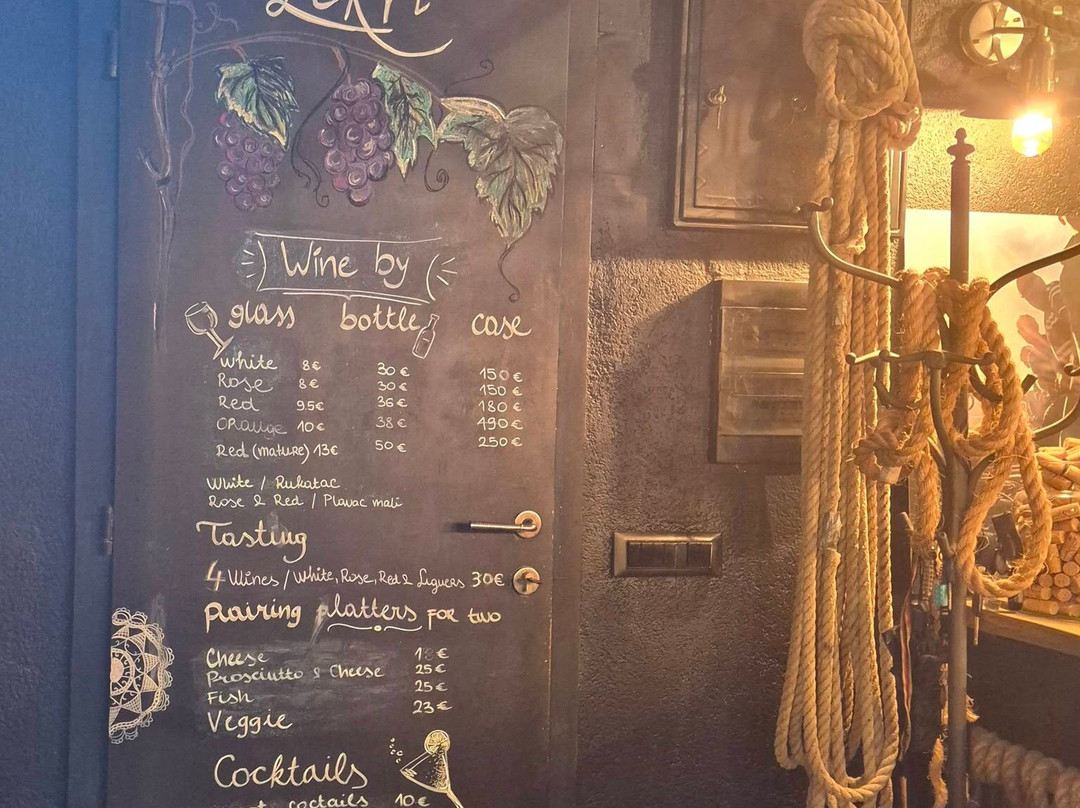 Wine by
glass bottle case
White 8€ 30€ 150€
Rose 8€ 30€ 150€
Red 9.5€ 36€ 180€
ORange 10€ 38€ 190€
Red (mature) 13€ 50€ 250€
White / Rukatac
Rose & Red / Plavac mali
Tasting
4 Wines / White, Rose, Red & Liguers 30€
Pairing platters FOR two
Cheese 18€
Prosciutto & Cheese 25€
Fish 25€
Veggie 23€
Cocktails
coctails 10€